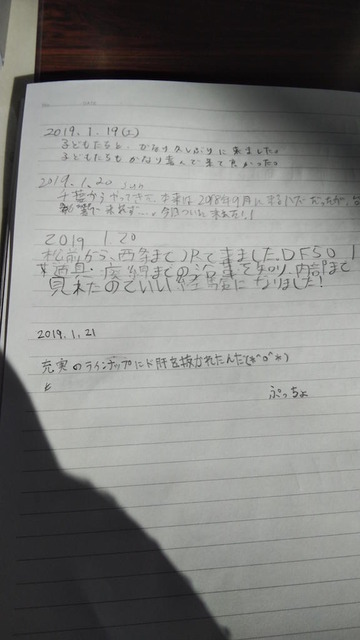 2019.1.19(土)
子どもたちと、かなり久しぶりに来ました。
子どもたちもかなり喜んで来て良かった。
2019.1.20 sun
千葉からやってきて、本来は2018年9月に来るはずだったが、台
で来れず…。今日ついに来れた!!
2019 1 20
松前から、西条までJRで来ました。DF50 1
を見 までの を知り、内部まで
見れたのでいい経験になりました!
2019.1.21
充実のラインナップにド肝を抜かれたんだて(*^o^*)
と ぷっちょ